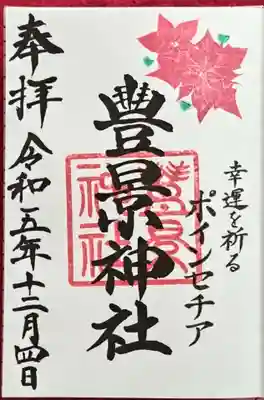 幸運を祈る
ポインセチア
豊景神社
奉拝
令和五年十二月四日